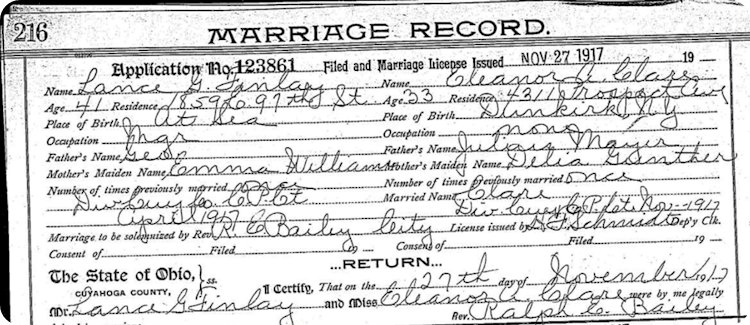 216 MARRIAGE RECORD.
Application No. 123861 Filed and Marriage License Issued NOV 27 1917 19
Name Lance G. Finlay Name Eleanor A. Clare
Age 41 Residence 1859 E 97th St. Age 33 Residence 4311 Prospect Ave
Place of Birth At Sea Place of Birth Dunkirk, N.Y
Occupation Mgr Occupation none
Father's Name Geo Father's Name Julius Mayer
Mother's Maiden Name Emma Williams Mother's Maiden Name Delia Guenther
Number of times previously married once Number of times previously married once
Div. Cuy Co C. P. Ct Married Name Clare
April 1917 Div. Cuy Co C. P. Ct. Nov-1917
Marriage to be solemnized by Rev. R. C. Bailey City License issued by Schmidt Dep'y Clk.
Consent of Filed 19 Consent of Filed 19
...RETURN...
The State of Ohio, } ss.
CUYAHOGA COUNTY, I Certify, That on the 27th day of November 1917
Mr. Lance G Finlay and Miss Eleanor A. Clare were by me legally
Rev. Ralph C. Bailey